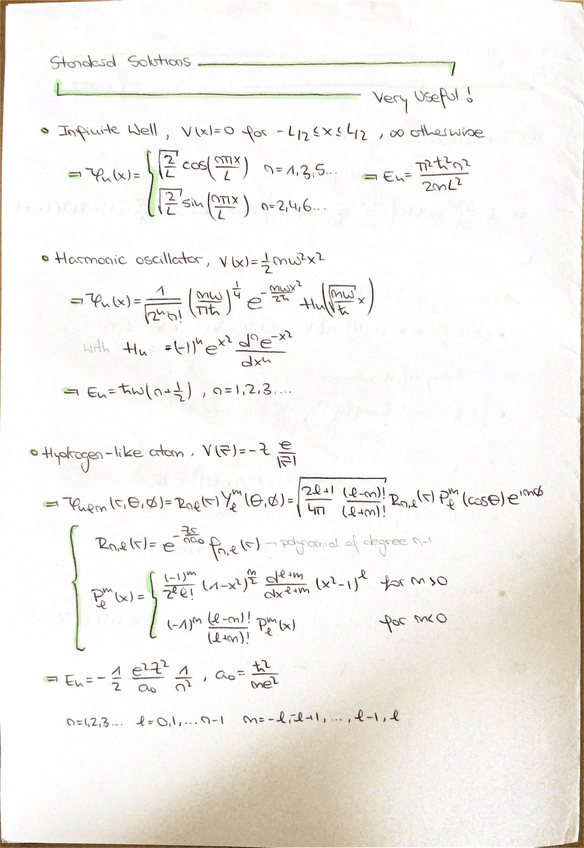 Standard Solutions
Very Useful !
• Infinite Well , V(x)=0 for -L/2 ≤ x ≤ L/2 , ∞ otherwise
⇒ Ψn(x)= { √(2/L) cos(nπx/L) n=1,3,5... ⇒ En= π²ħ²n²/2mL²
√(2/L) sin(nπx/L) n=2,4,6...
• Harmonic oscillator, V(x)=½mω²x²
⇒ Ψn(x)= 1/√(2ⁿn!) (mω/πħ)^(1/4) e^(-mωx²/2ħ) Hn(√(mω/ħ) x)
with Hn =(-1)ⁿ e^(x²) dⁿe^(-x²)/dxⁿ
⇒ En=ħω(n+½) , n=1,2,3....
• Hydrogen-like atom , V(r̄)=-Z e/|r̄|
⇒ Ψnlm(r,θ,ϕ)=Rnl(r) Yℓ^m(θ,ϕ)= √((2ℓ+1)/4π (ℓ-m)!/(ℓ+m)!) Rn,ℓ(r) Pℓ^m(cosθ) e^(imϕ)
{ Rn,ℓ(r)= e^(-Zr/na₀) ρn,ℓ(r) → polynomial of degree n-1
Pℓ^m(x)= { (-1)^m/2^ℓ ℓ! (1-x²)^(m/2) d^(ℓ+m)/dx^(ℓ+m) (x²-1)^ℓ for m>0
(-1)^m (ℓ-m)!/(ℓ+m)! Pℓ^m(x) for m<0
⇒ En=- 1/2 e²Z²/a₀ 1/n² , a₀= ħ²/me²
n=1,2,3... ℓ=0,1,... n-1 m=-ℓ,-ℓ+1, ... , ℓ-1, ℓ